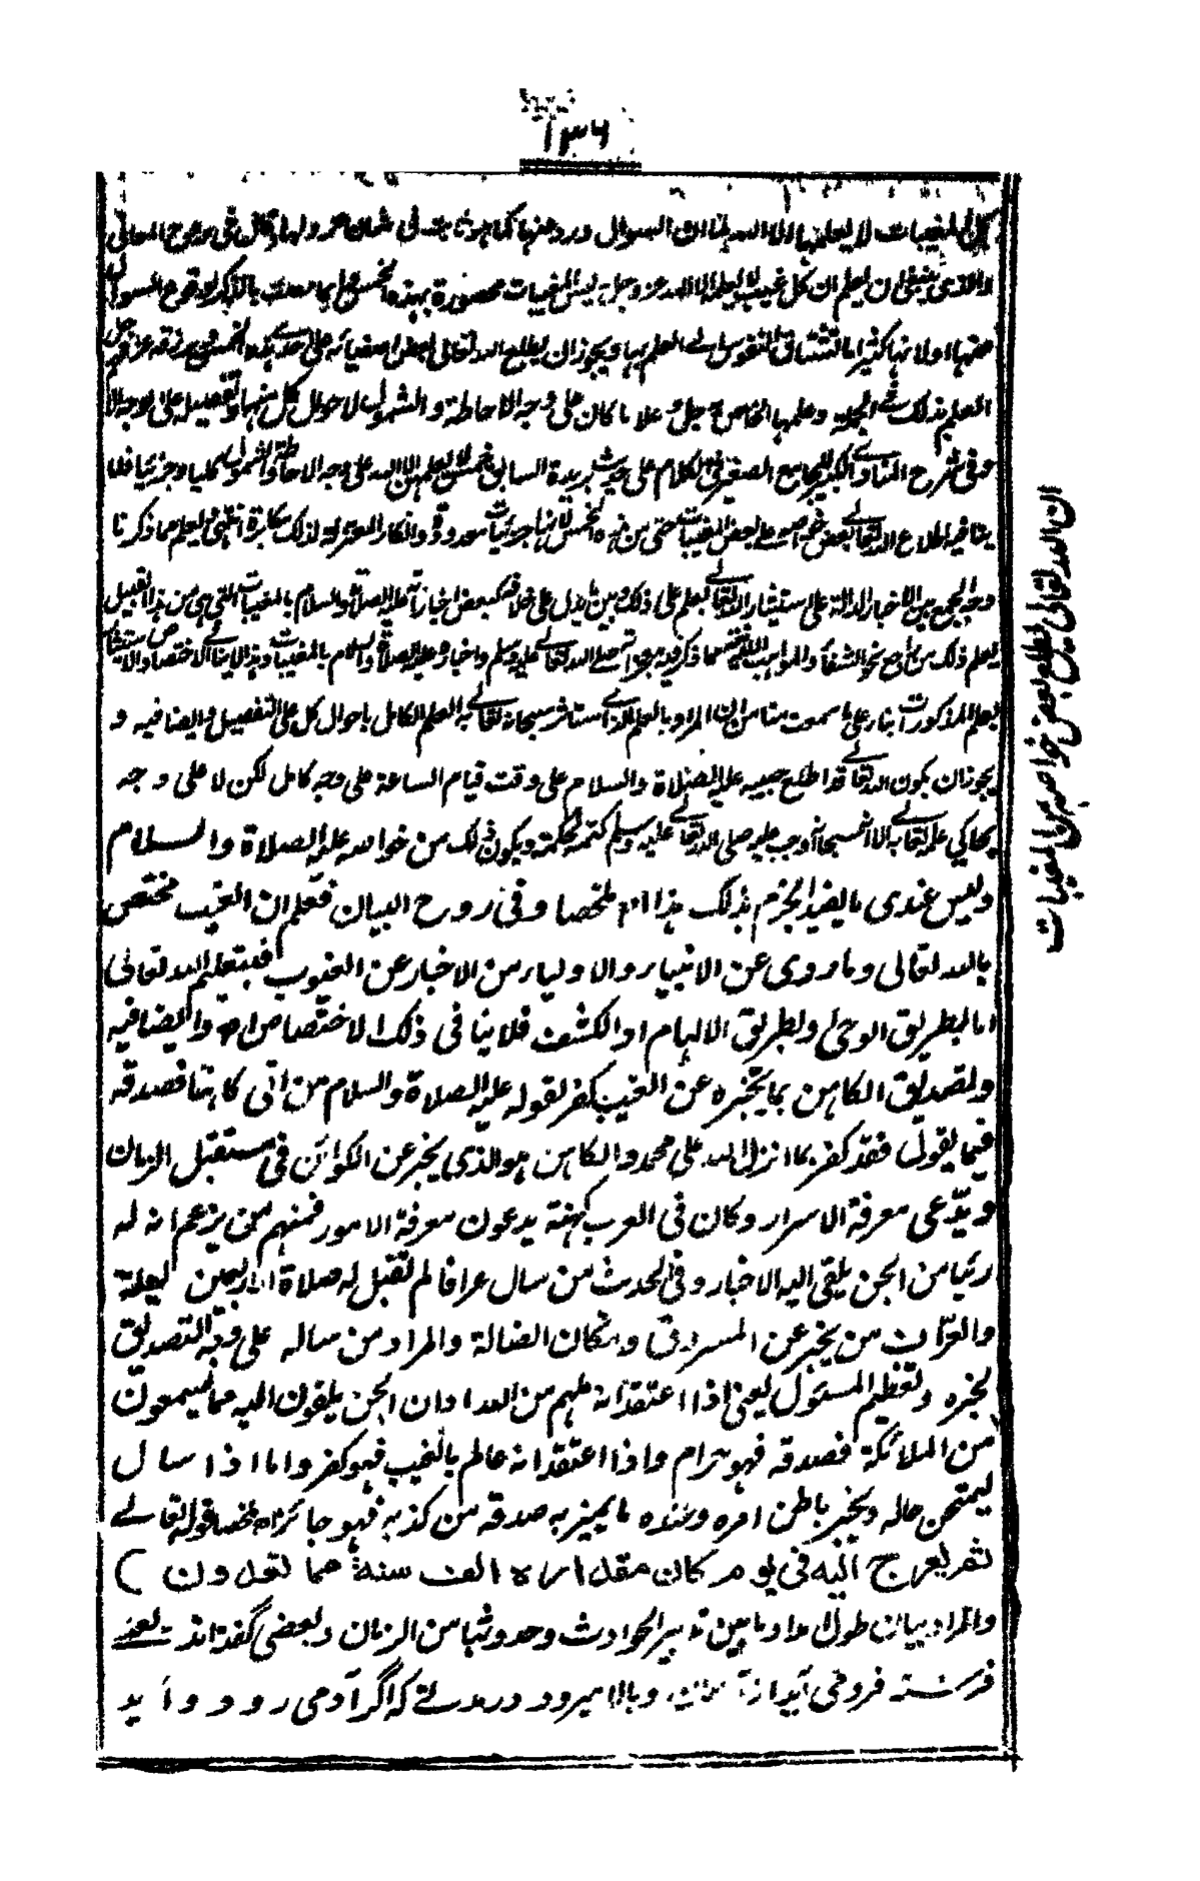 ١٣٦
كل المغيبات لا يعلمها الا الله لما ان السوال ورد عنها كما هو ثابت فى شان عز ولها وقال فى روح المعانى
والذى ينبغى ان يعلم ان كل غيب لا يعلمه الا الله عز وجل وليس المغيبات محصورة بهذه الخمس وانما خصت بالذكر لوقوع السوال
عنها اولانها كثيرا ما تشتاق النفوس الى العلم بها ويجوز ان يطلع الله تعالى بعض اصفيائه على احدى هذه الخمس ويرزقه عز وجل
العلم بذلك فى الجملة وعلمها الخاص به جل وعلا ما كان على وجه الاحاطة والشمول لاحوال كل منها وتفصيله على الوجه الا
وفى شرح المناوى الكبير للجامع الصغير فى الكلام على حديث بريدة السابق خمس لا يعلمهن الا الله على وجه الاحاطة والشمول كليا وجزئيا فلا
ينافيه اطلاع الله تعالى بعض خواصه على بعض المغيبات حتى من هذه الخمس لانها جزئيات معدودة وانكار المعتزلة لذلك مكابرة انتهى ويعلم مما ذكرنا
وجه الجمع بين الاخبار الدالة على استيثار الله تعالى بعلم على ذلك وبين ما يدل على خلافه كبعض اخباراته عليه الصلاة والسلام بالمغيبات التى هى من هذا القبيل
يعلم ذلك من راجع نحو الشفاء والمواهب اللدنية مما ذكر فيه معجزاته صلى الله تعالى عليه وسلم واخباره عليه الصلاة والسلام بالمغيبات وهذا لا ينافى الاختصاص والاستيثار
بعلم المذكورات بناء على ما سمعت منا من ان المراد بالعلم الذى استأثر سبحانه تعالى به العلم الكامل باحوال كل على التفصيل وايضا فيه و
يجوز ان يكون الله تعالى قد اطلع حبيبه عليه الصلاة والسلام على وقت قيام الساعة على وجه كامل لكن لا على وجه
يحاكى علمه تعالى به الا انه سبحانه اوجب عليه صلى الله تعالى عليه وسلم كتمه لحكمة ويكون ذلك من خواصه عليه الصلاة والسلام
وليس عندى ما يفيد الجزم بذلك هذا اه ملخصا وفى روح البيان فعلم ان الغيب مختص
بالله تعالى وما روى عن الانبياء والاولياء من الاخبار عن الغيوب فبتعليم الله تعالى
اما بطريق الوحى او بطريق الالهام او الكشف فلا ينافى ذلك الاختصاص اه وايضا فيه
وتصديق الكاهن بما يخبره عن الغيب كفر لقوله عليه الصلاة والسلام من اتى كاهنا فصدقه
فيما يقول فقد كفر بما انزل الله على محمد والكاهن هو الذى يخبر عن الكوائن فى مستقبل الزمان
ويدّعى معرفة الاسرار وكان فى العرب كهنة يدعون معرفة الامور فمنهم من يزعم انه له
رئيا من الجن يلقى اليه الاخبار وفى الحدث من سال عرافا لم تقبل له صلاة اربعين ليلة
والعرّاف من يخبر عن المسروق ومكان الضالة والمراد من ساله على وجه التصديق
لخبره وتعظيم المسئول يعنى اذا اعتقد انه ملهم من الله او ان الجن يلقون اليه مما يسمعون
من الملائكة فصدقه فهو حرام واذا اعتقد انه عالم بالغيب فهو كفر واما اذا سال
ليمتحن حاله ويخبر باطن امره وعنده ما يميز به صدقه من كذبه فهو جائز اه ملخصا قوله تعالى
ثم يعرج اليه فى يوم كان مقداره الف سنة مما تعدون )
والمراد بيان طول مدة ما بين تدبير الحوادث وحدوثها من الزمان وبعضى گفته اند يعنى
فرشته فرومى آيد از آسمان وبالا ميرود در مدتے كه اگر آدمى رود و آيد
ان الله تعالى يطلع بعض خواصه على بعض من المغيبات